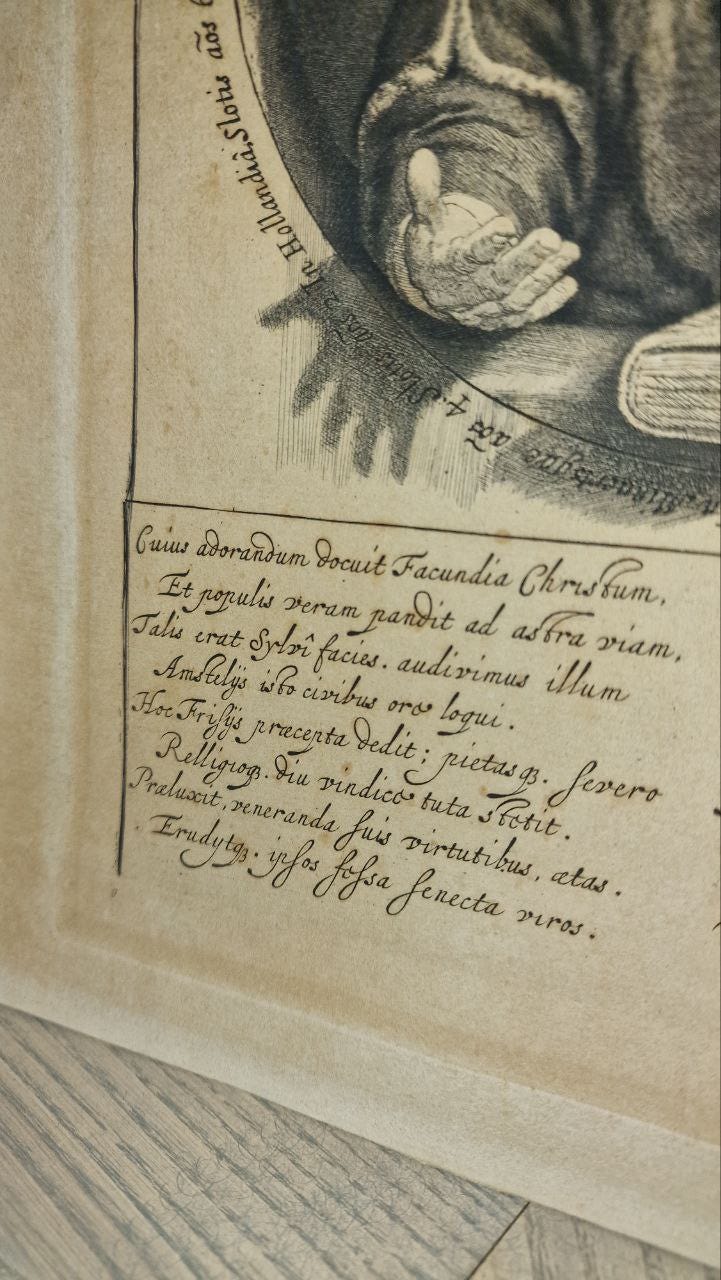 In Hollandiâ, Slotis ãos 6
Slotis ãos 2
ãos 4.
Cuius adorandum docuit Facundia Christum,
Et populis veram pandit ad astra viam,
Talis erat Sylvî facies. audivimus illum
Amstelijs isto civibus ore loqui.
Hoc Frisijs præcepta dedit; pietasqȝ. severo
Relligioqȝ. diu vindice tuta stetit.
Præluxit, veneranda suis virtutibus, ætas.
Erudytqȝ. ipsos fessa senecta viros.